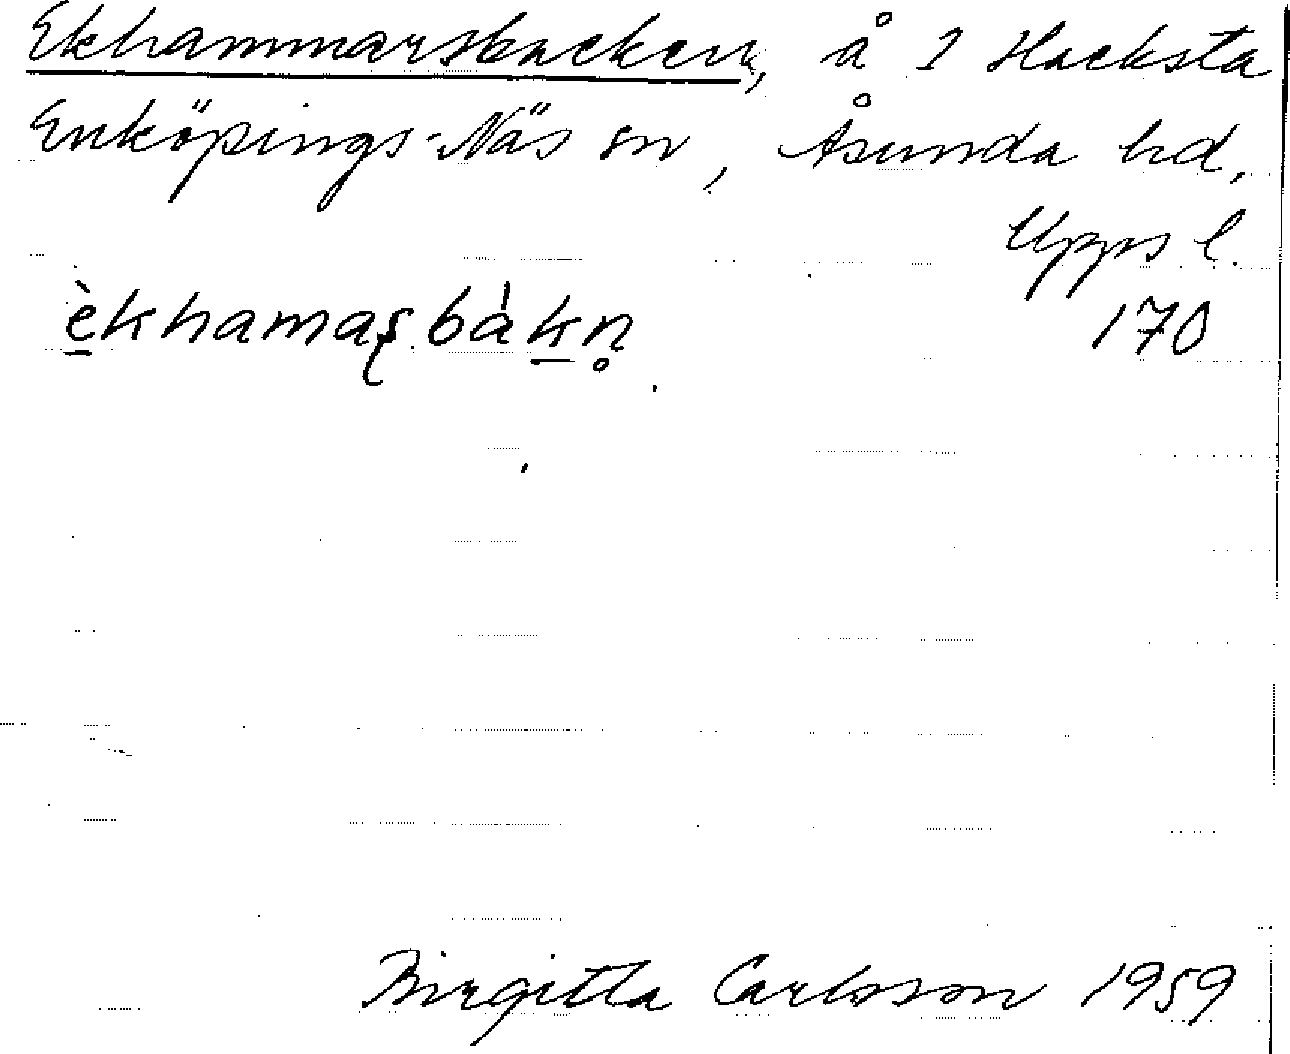 Ekhammarsbacken, å 1 Hacksta
Enköpings-Näs sn, Åsunda hd,
Upps l.
èkhamaʂbàkn̥
170
Birgitta Carlsson 1959